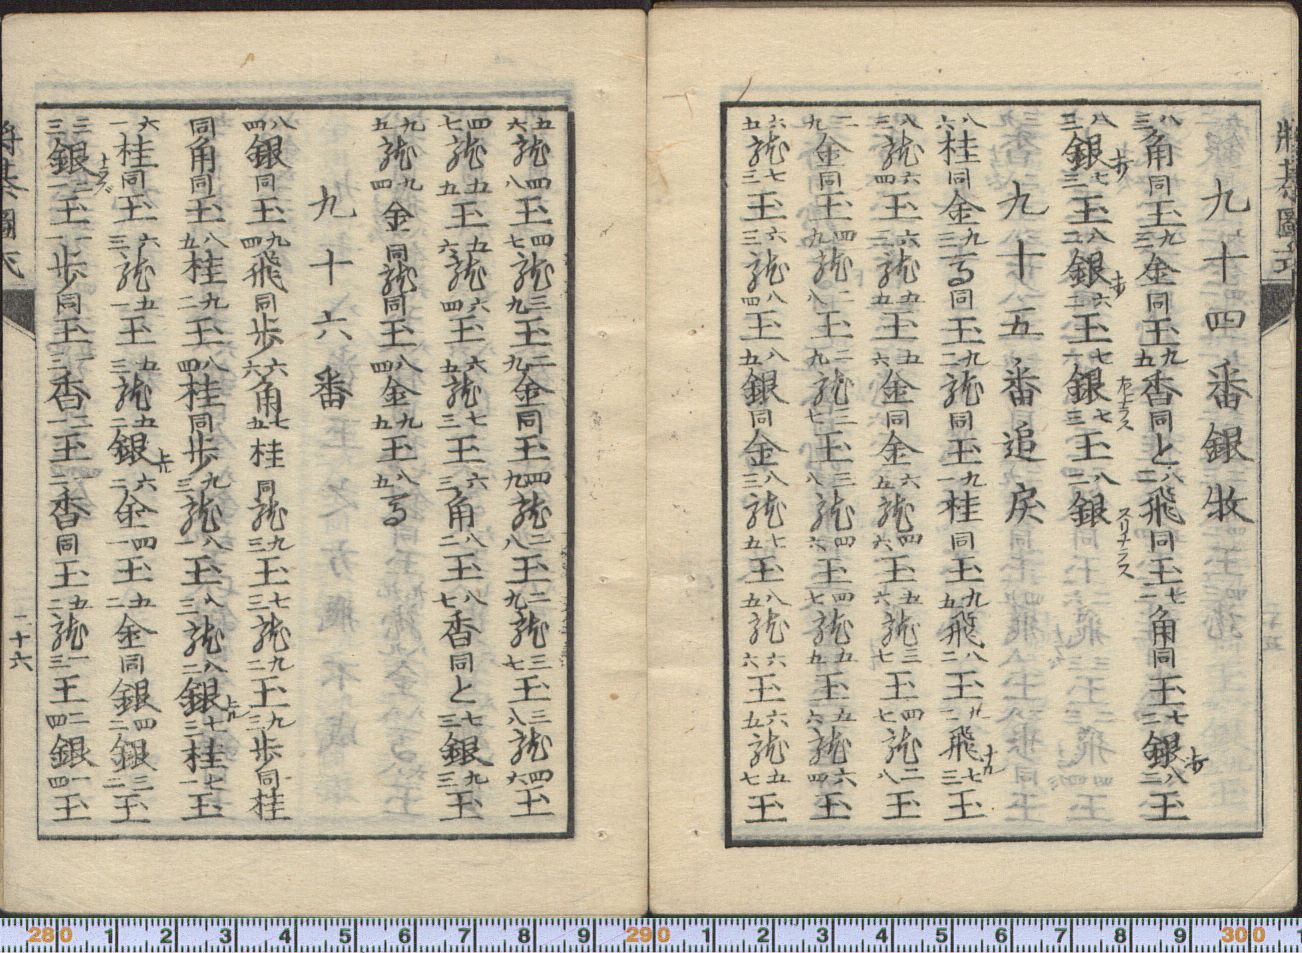 將棊圖式
九十四番銀牧
八三角同玉九二金同玉九五香同と八二飛同玉七一角同玉七二銀八二玉
八三銀七三玉八二銀六二玉七六銀左上ナラス七三玉八二銀スリナラス
九十五番追戻
八六桂同金九三る同玉九二龍同玉九一桂同玉九五飛八二玉飛ナル七三玉
六五龍七三玉六三龍八四玉八五銀同金八三龍七五玉八五龍六六玉六五龍五七玉
二九金同玉四九龍二八玉二九龍三七玉三八龍四六玉四七龍五五玉五六龍六四玉
八三龍六四玉六三龍五五玉五六金同金六五龍四六玉五六龍三七玉四七龍二八玉
五六龍四八玉四七龍三九玉二九金同玉四九龍二八玉二九龍三七玉三八龍四六玉
四七龍五五玉五六龍六四玉六五龍七三玉六三角八二玉八七香同と七三銀九三玉
九五龍九四金同龍同玉八四金九五玉八五る
九十六番
八四銀同玉九四飛同歩六六角七五桂同龍九三玉七三龍九二玉九三歩同桂
同角同玉八五桂九二玉八四桂同歩九三龍八一玉八三龍八二銀上ル七三桂七一玉
六一桂同玉六三龍五一玉五三龍五二銀上ル六二金四一玉五二金同銀四二銀三二玉
三三銀ナラズ二一玉歩同玉三香二一玉二香同玉五二龍三一玉四二銀四一玉
二十六
將棊圖式